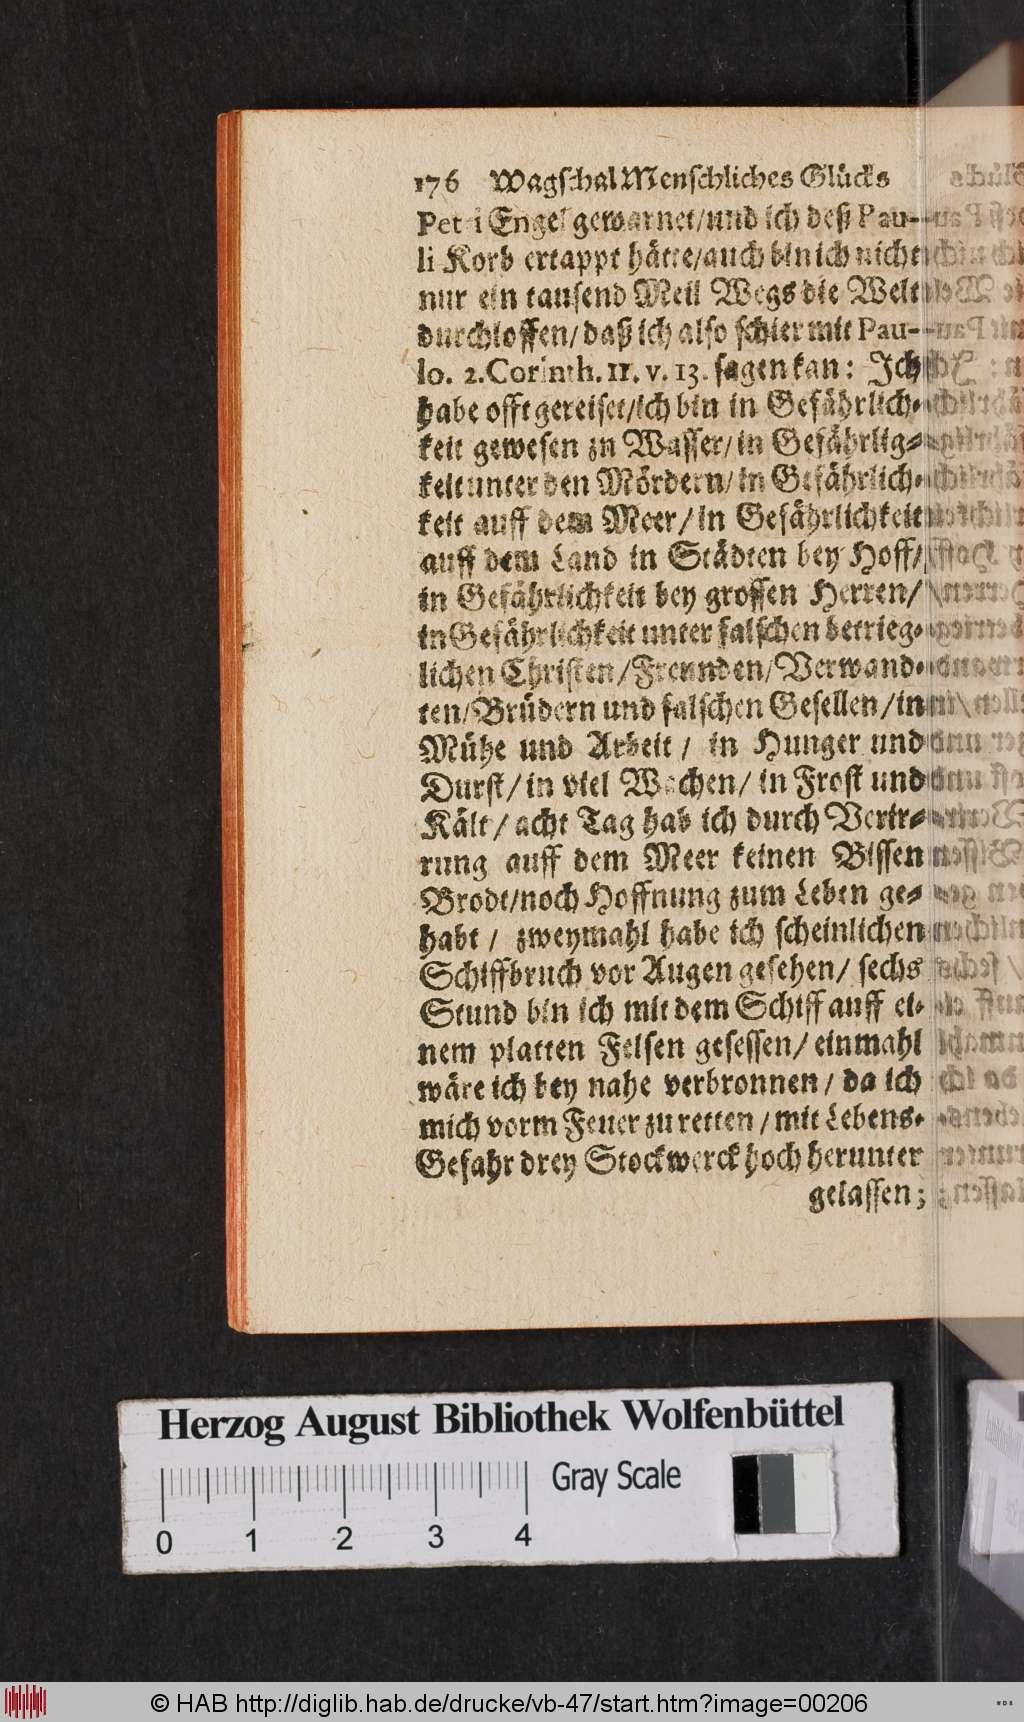 176 Wagschal Menschliches Glücks
Petri Engel gewarnet/und ich deß Pau-
li Korb ertappt hätte/auch bin ich nicht
nur ein tausend Meil Wegs die Welt
durchloffen/daß ich also schier mit Pau-
lo. 2. Corinth. 11. v. 13. sagen kan: Ich
habe offt gereiset/ich bin in Gefährlich-
keit gewesen zu Wasser/in Gefährlig-
keit unter den Mördern/in Gefährlich-
keit auff dem Meer/in Gefährlichkeit
auff dem Land in Städten bey Hoff/
in Gefährlichkeit bey grossen Herren/
in Gefährlichkeit unter falschen betrieg-
lichen Christen/Freunden/Verwand-
ten/Brüdern und falschen Gesellen/in
Mühe und Arbeit/ in Hunger und
Durst/in viel Wachen/in Frost und
Kält/acht Tag hab ich durch Verir-
rung auff dem Meer keinen Bissen
Brodt/noch Hoffnung zum Leben ge-
habt/ zweymahl habe ich scheinlichen
Schiffbruch vor Augen gesehen/ sechs
Stund bin ich mit dem Schiff auff ei-
nem platten Felsen gesessen/einmahl
wäre ich bey nahe verbronnen/da ich
mich vorm Feuer zu retten/mit Lebens-
Gefahr drey Stockwerck hoch herunter
gelassen;
Herzog August Bibliothek Wolfenbüttel
0 1 2 3 4 Gray Scale
© HAB http://diglib.hab.de/drucke/vb-47/start.htm?image=00206